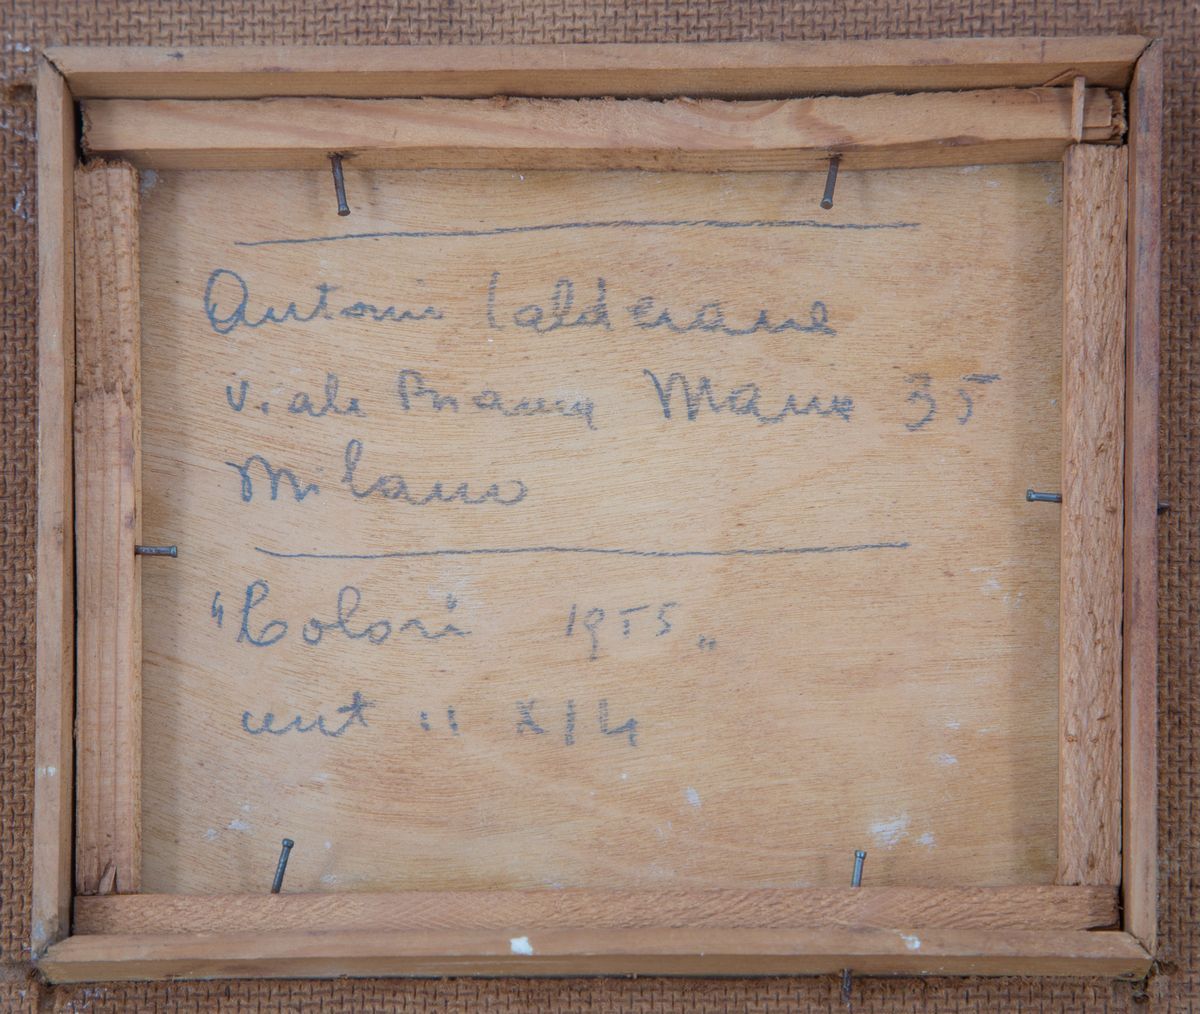 Antonio Calderara
Viale Bianca Maria 35
Milano
"Colori 1955"
cent 11 x 14